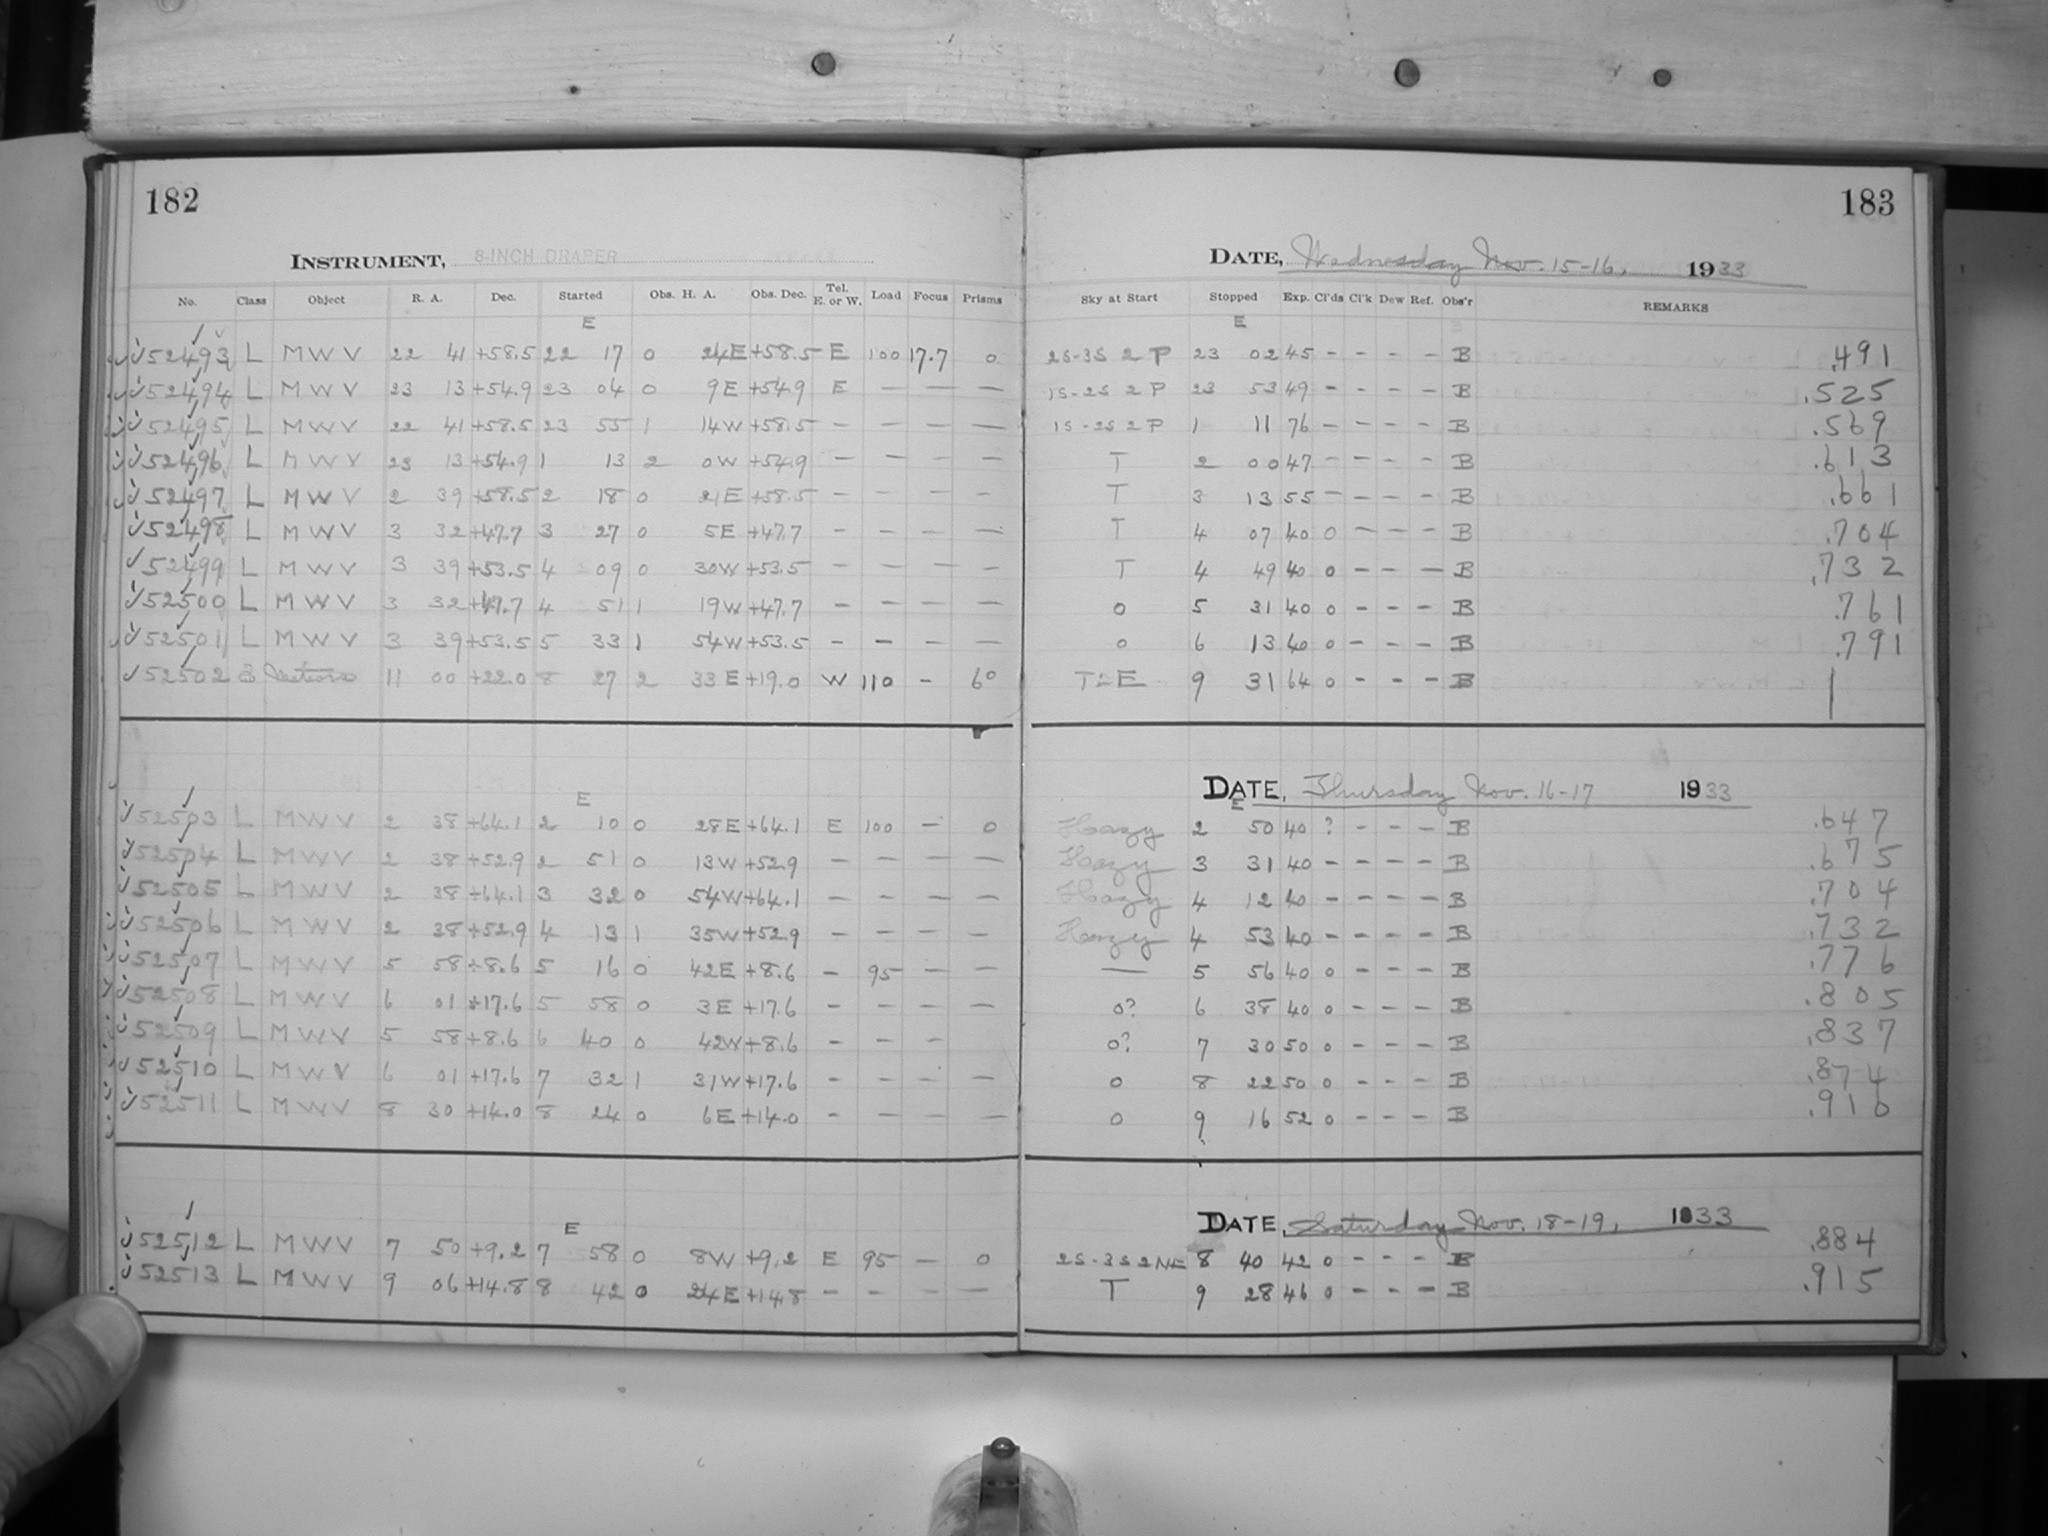 182
INSTRUMENT, 8-INCH DRAPER
No. Class Object R. A. Dec. Started Obs. H. A. Obs. Dec. Tel. E. or W. Load Focus Prisms
E
52493 L MWV 22 41 +58.5 22 17 0 24E +58.5 E 100 17.7 0
52494 L MWV 23 13 +54.9 23 04 0 9E +54.9 E — — —
52495 L MWV 22 41 +58.5 23 55 1 14W +58.5 — — — —
52496 L MWV 23 13 +54.9 1 13 2 0W +54.9 — — — —
52497 L MWV 2 39 +58.5 2 18 0 21E +58.5 — — — —
52498 L MWV 3 32 +47.7 3 27 0 5E +47.7 — — — —
52499 L MWV 3 39 +53.5 4 09 0 30W +53.5 — — — —
52500 L MWV 3 32 +47.7 4 51 1 19W +47.7 — — — —
52501 L MWV 3 39 +53.5 5 33 1 54W +53.5 — — — —
52502 11 00 +22.0 8 27 2 33E +19.0 W 110 — 6°
E
52503 L MWV 2 38 +64.1 2 10 0 28E +64.1 E 100 — 0
52504 L MWV 2 38 +52.9 2 51 0 13W +52.9 — — — —
52505 L MWV 2 38 +64.1 3 32 0 54W +64.1 — — — —
52506 L MWV 2 38 +52.9 4 13 1 35W +52.9 — — — —
52507 L MWV 5 58 +8.6 5 16 0 42E +8.6 — 95 — —
52508 L MWV 6 01 +17.6 5 58 0 3E +17.6 — — — —
52509 L MWV 5 58 +8.6 6 40 0 42W +8.6 — — —
52510 L MWV 6 01 +17.6 7 32 1 31W +17.6 — — — —
52511 L MWV 8 30 +14.0 8 24 0 6E +14.0 — — — —
E
52512 L MWV 7 50 +9.2 7 58 0 8W +9.2 E 95 — 0
52513 L MWV 9 06 +14.8 8 42 0 24E +14.8 — — — —
183
DATE, Wednesday Nov. 15-16, 1933
Sky at Start Stopped Exp. Cl'ds Cl'k Dew Ref. Obs'r REMARKS
E
2S-3S 2 P 23 02 45 - - - - B .491
1S-2S 2 P 23 53 49 - - - - B .525
1S-2S 2 P 1 11 76 - - - - B .569
T 2 00 47 - - - - B .613
T 3 13 55 - - - - B .661
T 4 07 40 0 - - - B .704
T 4 49 40 0 - - - B .732
0 5 31 40 0 - - - B .761
0 6 13 40 0 - - - B .791
9 31 64 0 - - - B
DATE, Thursday Nov. 16-17 1933
E
Hazy 2 50 40 ? - - - B .647
Hazy 3 31 40 - - - - B .675
Hazy 4 12 40 - - - - B .704
Hazy 4 53 40 - - - - B .732
— 5 56 40 0 - - - B .776
0? 6 38 40 0 - - - B .805
0? 7 30 50 0 - - - B .837
0 8 22 50 0 - - - B .874
0 9 16 52 0 - - - B .910
DATE, Saturday Nov. 18-19, 1933
2S-3S 2NE 8 40 42 0 - - - B .884
T 9 28 46 0 - - - B .915